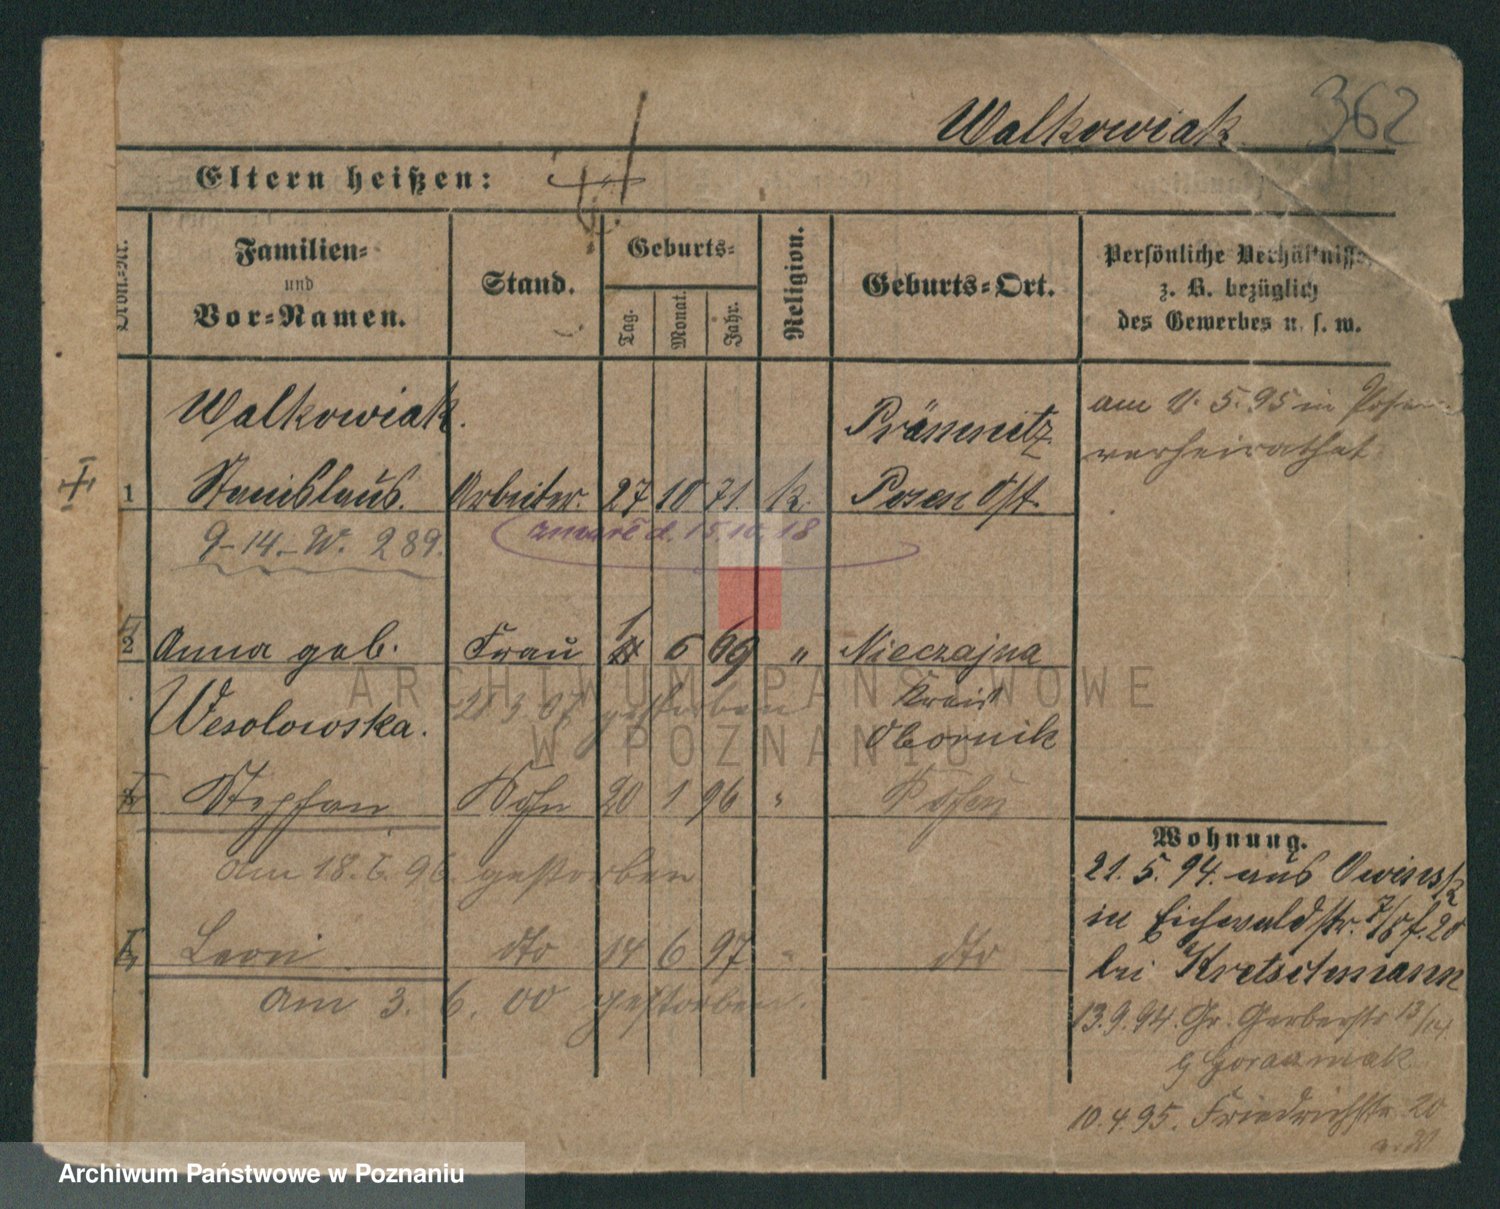 Walkowiak 362
Eltern heißen:
Familien-
und
Vor-Namen.
Stand.
Geburts-
Tag.
Monat.
Jahr.
Religion.
Geburts-Ort.
Persönliche Verhältnisse
z. B. bezüglich
des Gewerbes u. s. w.
Walkowiak.
1 Stanislaus. Arbeiter. 27 10 71. k. Posen Ost.
am 5. 95 in Posen
verheirathet
9-14-W. 289.
zmarł d. 15.10.18
2 Anna geb. Frau 1 6 69 " Nieczajna
Wesolowska. 21 3 07 gestorben Kreis
Obornik
Stephan Sohn 20 1 96 " Posen
am 18. 6. 96. gestorben
Leon dto 14 6 97 " dto
am 3. 6. 00 gestorben.
Wohnung.
21. 5. 94. aus Owinsk
in Eichwaldstr. 20
bei Kretschmann
13. 9. 94. Gr. Gerberstr 13/14.
10. 4. 95. Friedrichstr. 20
ARCHIWUM PAŃSTWOWE
W POZNANIU
Archiwum Państwowe w Poznaniu